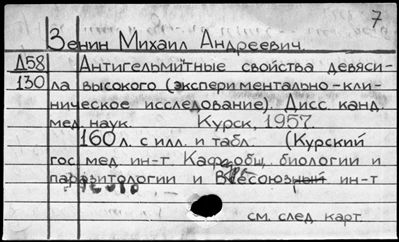 7
Зенин Михаил Андреевич.
Д58 Антигельминтные свойства девяси-
130 ла высокого (экспериментально-кли-
ническое исследование). Дисс. канд.
мед. наук. Курск, 1957.
160 л. с илл. и табл. (Курский
гос. мед. ин-т. Каф. общ. биологии и
паразитологии и Всесоюзный ин-т
см. след. карт.